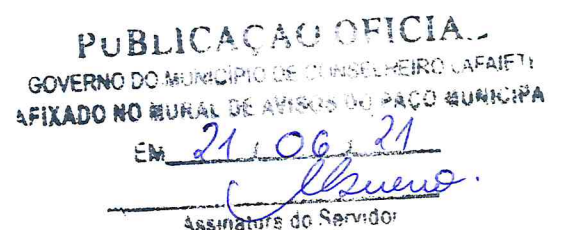 PUBLICAÇÃO OFICIAL
GOVERNO DO MUNICÍPIO DE CONSELHEIRO LAFAIETE
AFIXADO NO MURAL DE AVISOS DO PAÇO MUNICIPA
EM 21 / 06 / 21
Assinatura do Servidor